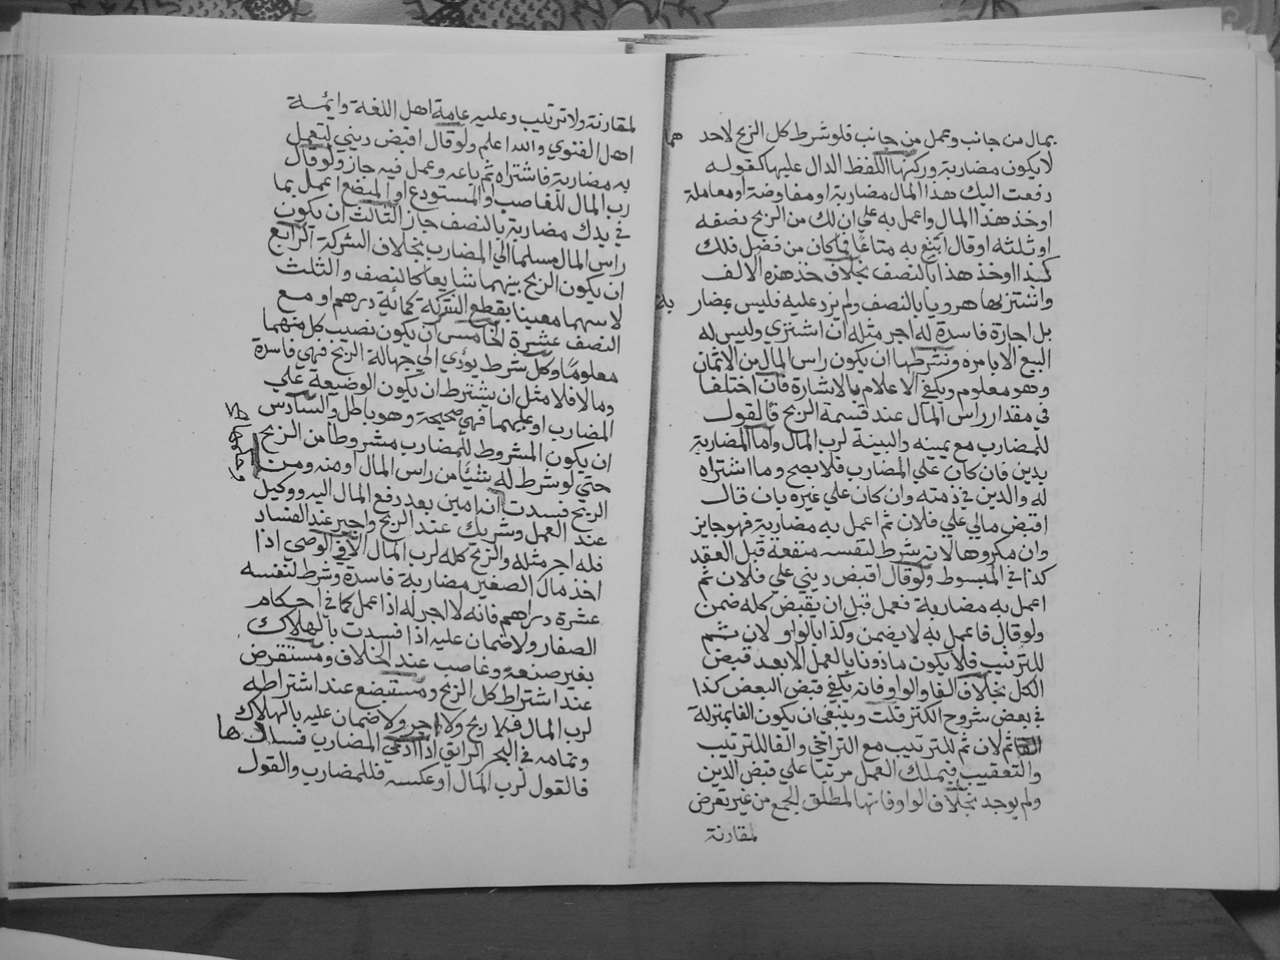 بمال من جانب وعمل من جانب فلو شرط كل الربح لاحدهما
لا يكون مضاربة وركنها اللفظ الدال عليها كقوله
دفعت اليك هذا المال مضاربة او مفاوضة او معاملة
او خذ هذا المال واعمل به علي ان لك من الربح نصفه
او ثلثه او قال ابتغ به متاعا فما كان من فضل فلك
كذا او خذ هذا بالنصف بخلاف خذ هذه الالف
واشتر بها هرويا بالنصف ولم يزد عليه فليس بمضاربه
بل اجارة فاسدة له اجر مثله ان اشتري وليس له
البيع الا بامره وشرطها ان يكون راس المال من الاثمان
وهو معلوم وكفي الاعلام بالاشارة فان اختلفا
في مقدار راس المال عند قسمة الربح فالقول
للمضارب مع يمينه والبينة لرب المال واما المضاربة
بدين فان كان علي المضارب فلا يصح وما اشتراه
له والدين في ذمته وان كان علي غيره بان قال
اقبض مالي علي فلان ثم اعمل به مضاربة فهو جايز
وان مكروها لانه شرط لنفسه منفعة قبل العقد
كذا في المبسوط ولو قال اقبض ديني علي فلان ثم
اعمل به مضاربة فعمل قبل ان يقبض كله ضمن
ولو قال فاعمل به لا يضمن وكذا بالواو لان ثم
للترتيب فلا يكون ماذونا بالعمل الا بعد قبض
الكل بخلاف الفا والواو فانه يكفي قبض البعض كذا
في بعض شروح الكنز قلت وينبغي ان يكون الفا بمنزلة
ثم لان ثم للترتيب مع التراخي والفا للترتيب
والتعقيب فيملك العمل مرتبا علي قبض الدين
ولم يوجد بخلاف الواو فانها لمطلق الجمع من غير تعرض
لمقارنة
لمقارنة ولا ترتيب وعليه عامة اهل اللغة وايمة
اهل الفتوي والله اعلم ولو قال اقبض ديني لتعمل
به مضاربة فاشتراه ثم باعه وعمل فيه جاز ولو قال
رب المال للغاصب والمستودع او المبضع اعمل بما
في يدك مضاربة بالنصف جاز الثالث ان يكون
راس المال مسلما الي المضارب بخلاف الشركة الرابع
ان يكون الربح بينهما شايعا كالنصف والثلث
لا سهما معينا يقطع الشركة كمائة درهم او مع
النصف عشرة الخامس ان يكون نصيب كل منهما
معلوما وكل شرط يودي الي جهالة الربح فهي فاسدة
وما لا فلا مثل ان يشترط ان يكون الوضيعة علي
المضارب او عليهما فهي صحيحة وهو باطل والسادس
ان يكون المشروط للمضارب مشروطا من الربح
حتي لو شرط له شيئا من راس المال او منه ومن
الربح فسدت وحكمها انه امين بعد دفع المال اليه ووكيل
عند العمل وشريك عند الربح واجير عند الفساد
فله اجر مثله والربح كله لرب المال الا في الوصي اذا
اخذ مال الصغير مضاربة فاسدة وشرط لنفسه
عشرة دراهم فانه لا اجر له اذا عمل كما في احكام
الصغار ولا ضمان عليه اذا فسدت بالهلاك
بغير صنعه وغاصب عند الخلاف ومستقرض
عند اشتراط كل الربح ومستبضع عند اشتراطه
لرب المال فلا ربح ولا اجر ولا ضمان عليه بالهلاك
وتمامه في البحر الرايق اذا ادعي المضارب فسادها
فالقول لرب المال او عكسه فللمضارب والقول